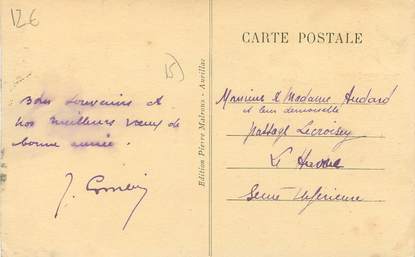 12€
15)
Bons souvenirs et
nos meilleurs vœux de
bonne année.
Edition Pierre Malroux - Aurillac
CARTE POSTALE
Monsieur & Madame Audard
et leur demoiselle
passage Lecroisey
Le Havre
Seine Inférieure